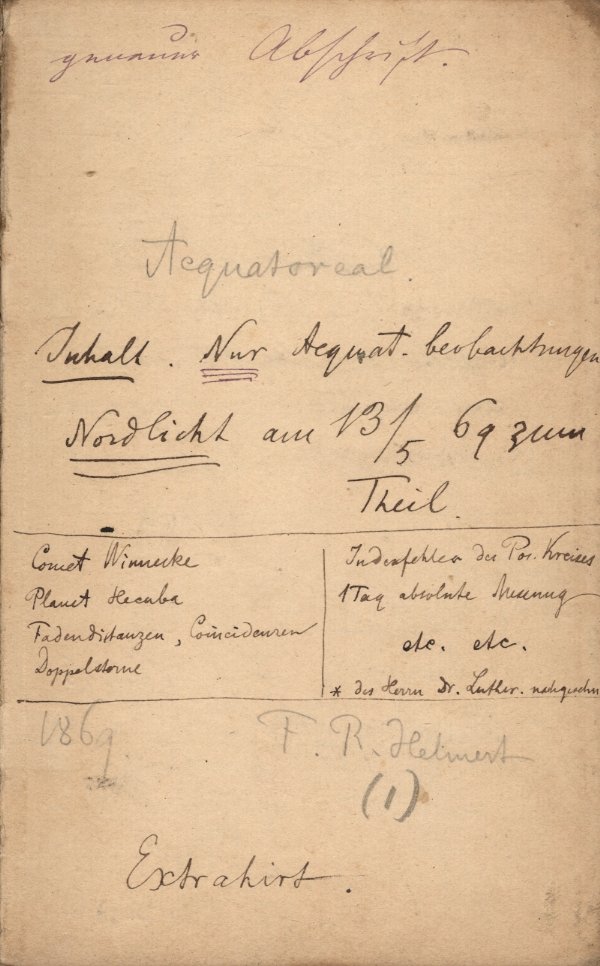 genauer Abschrift.
Aequatoreal.
Inhalt. Nur Aequat. beobachtungen
Nordlicht am 13/5 69 zum
Theil.
Comet Winnecke
Planet Hecuba
Fadendistanzen, Coincidenzen
Doppelsterne
Indexfehler des Pos. Kreises
1 Tag absolute Messung
etc. etc.
* des Herrn Dr. Luther. nachgesehn
1869.
F. R. Helmert
(1)
Extrahirt.